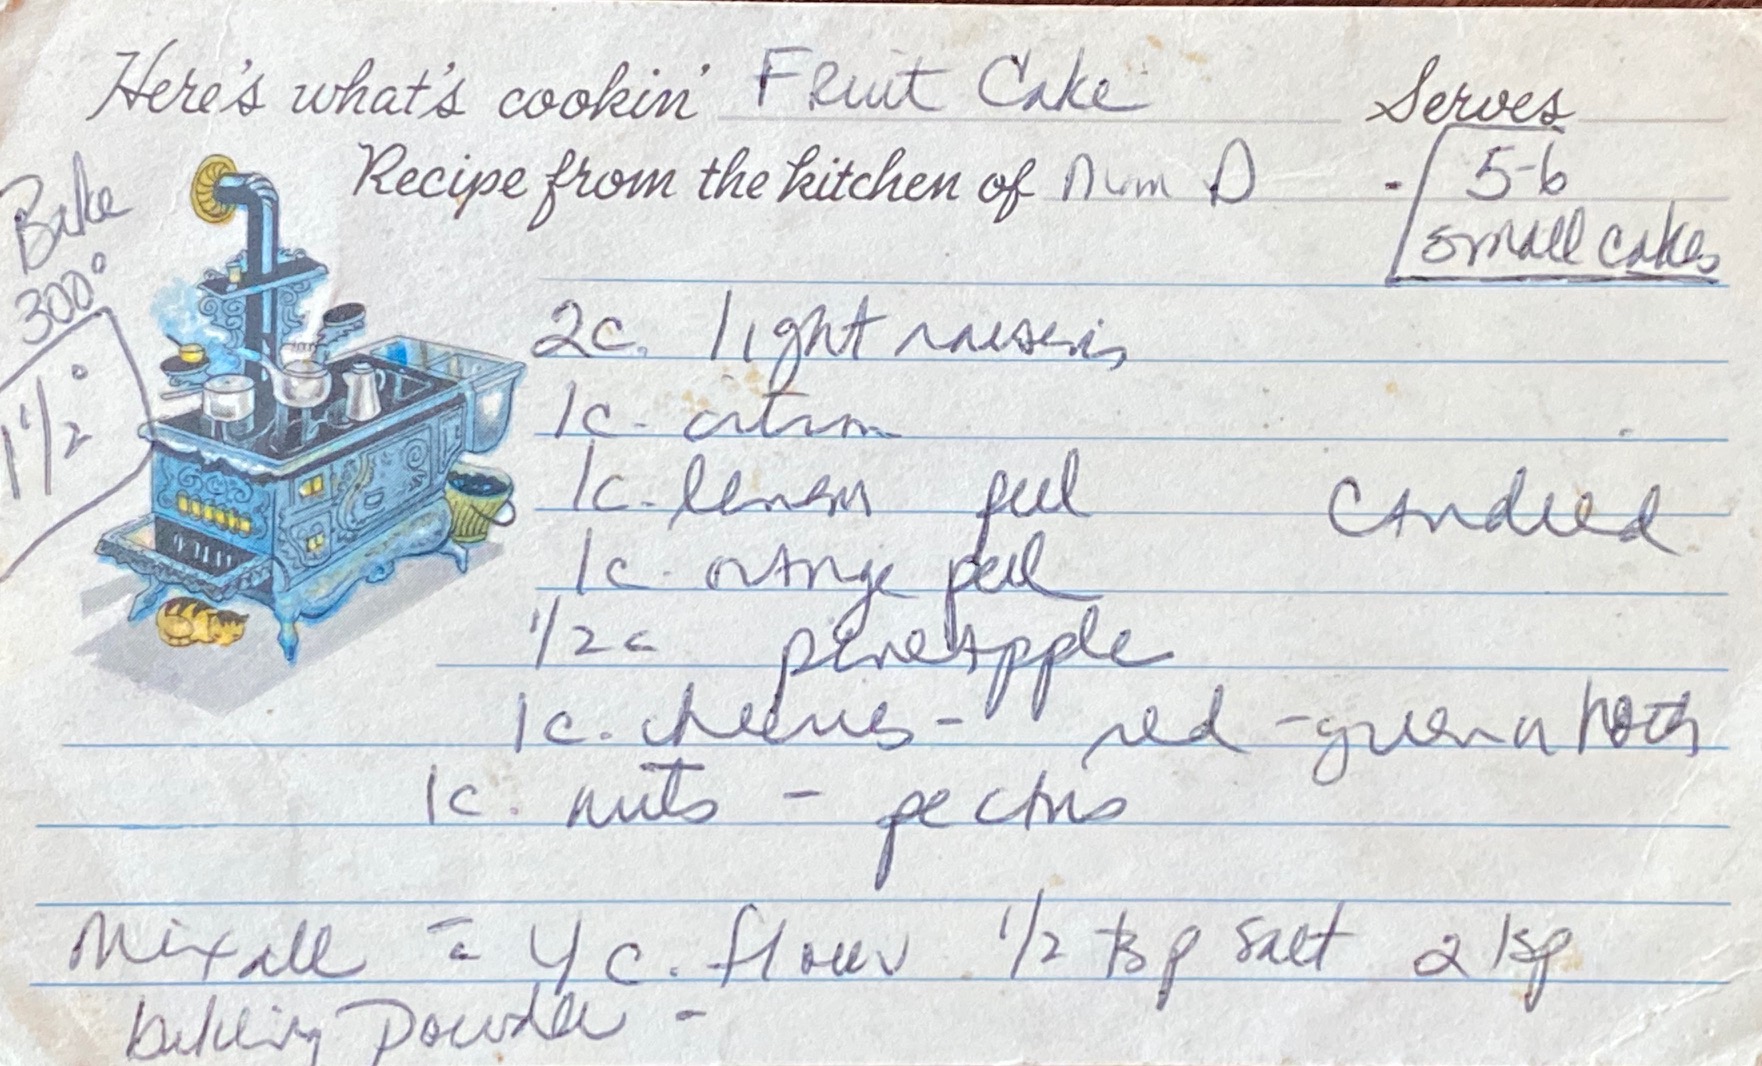 Here's what's cookin' Fruit Cake Serves
Recipe from the kitchen of Mum D - 5-6
small cakes
Bake
300°
1 1/2°
2c. light raisens
1c. citron
1c. lemon peel Candied
1c. orange peel
1/2 c pineapple
1c. cherries - red - green or both
1c. nuts - pecans
Mix all = 4 c. flour 1/2 tsp salt 2 tsp
baking powder -